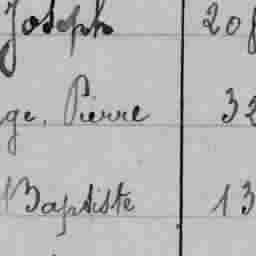 Joseph 208
ge, Pierre 32
Baptiste 13